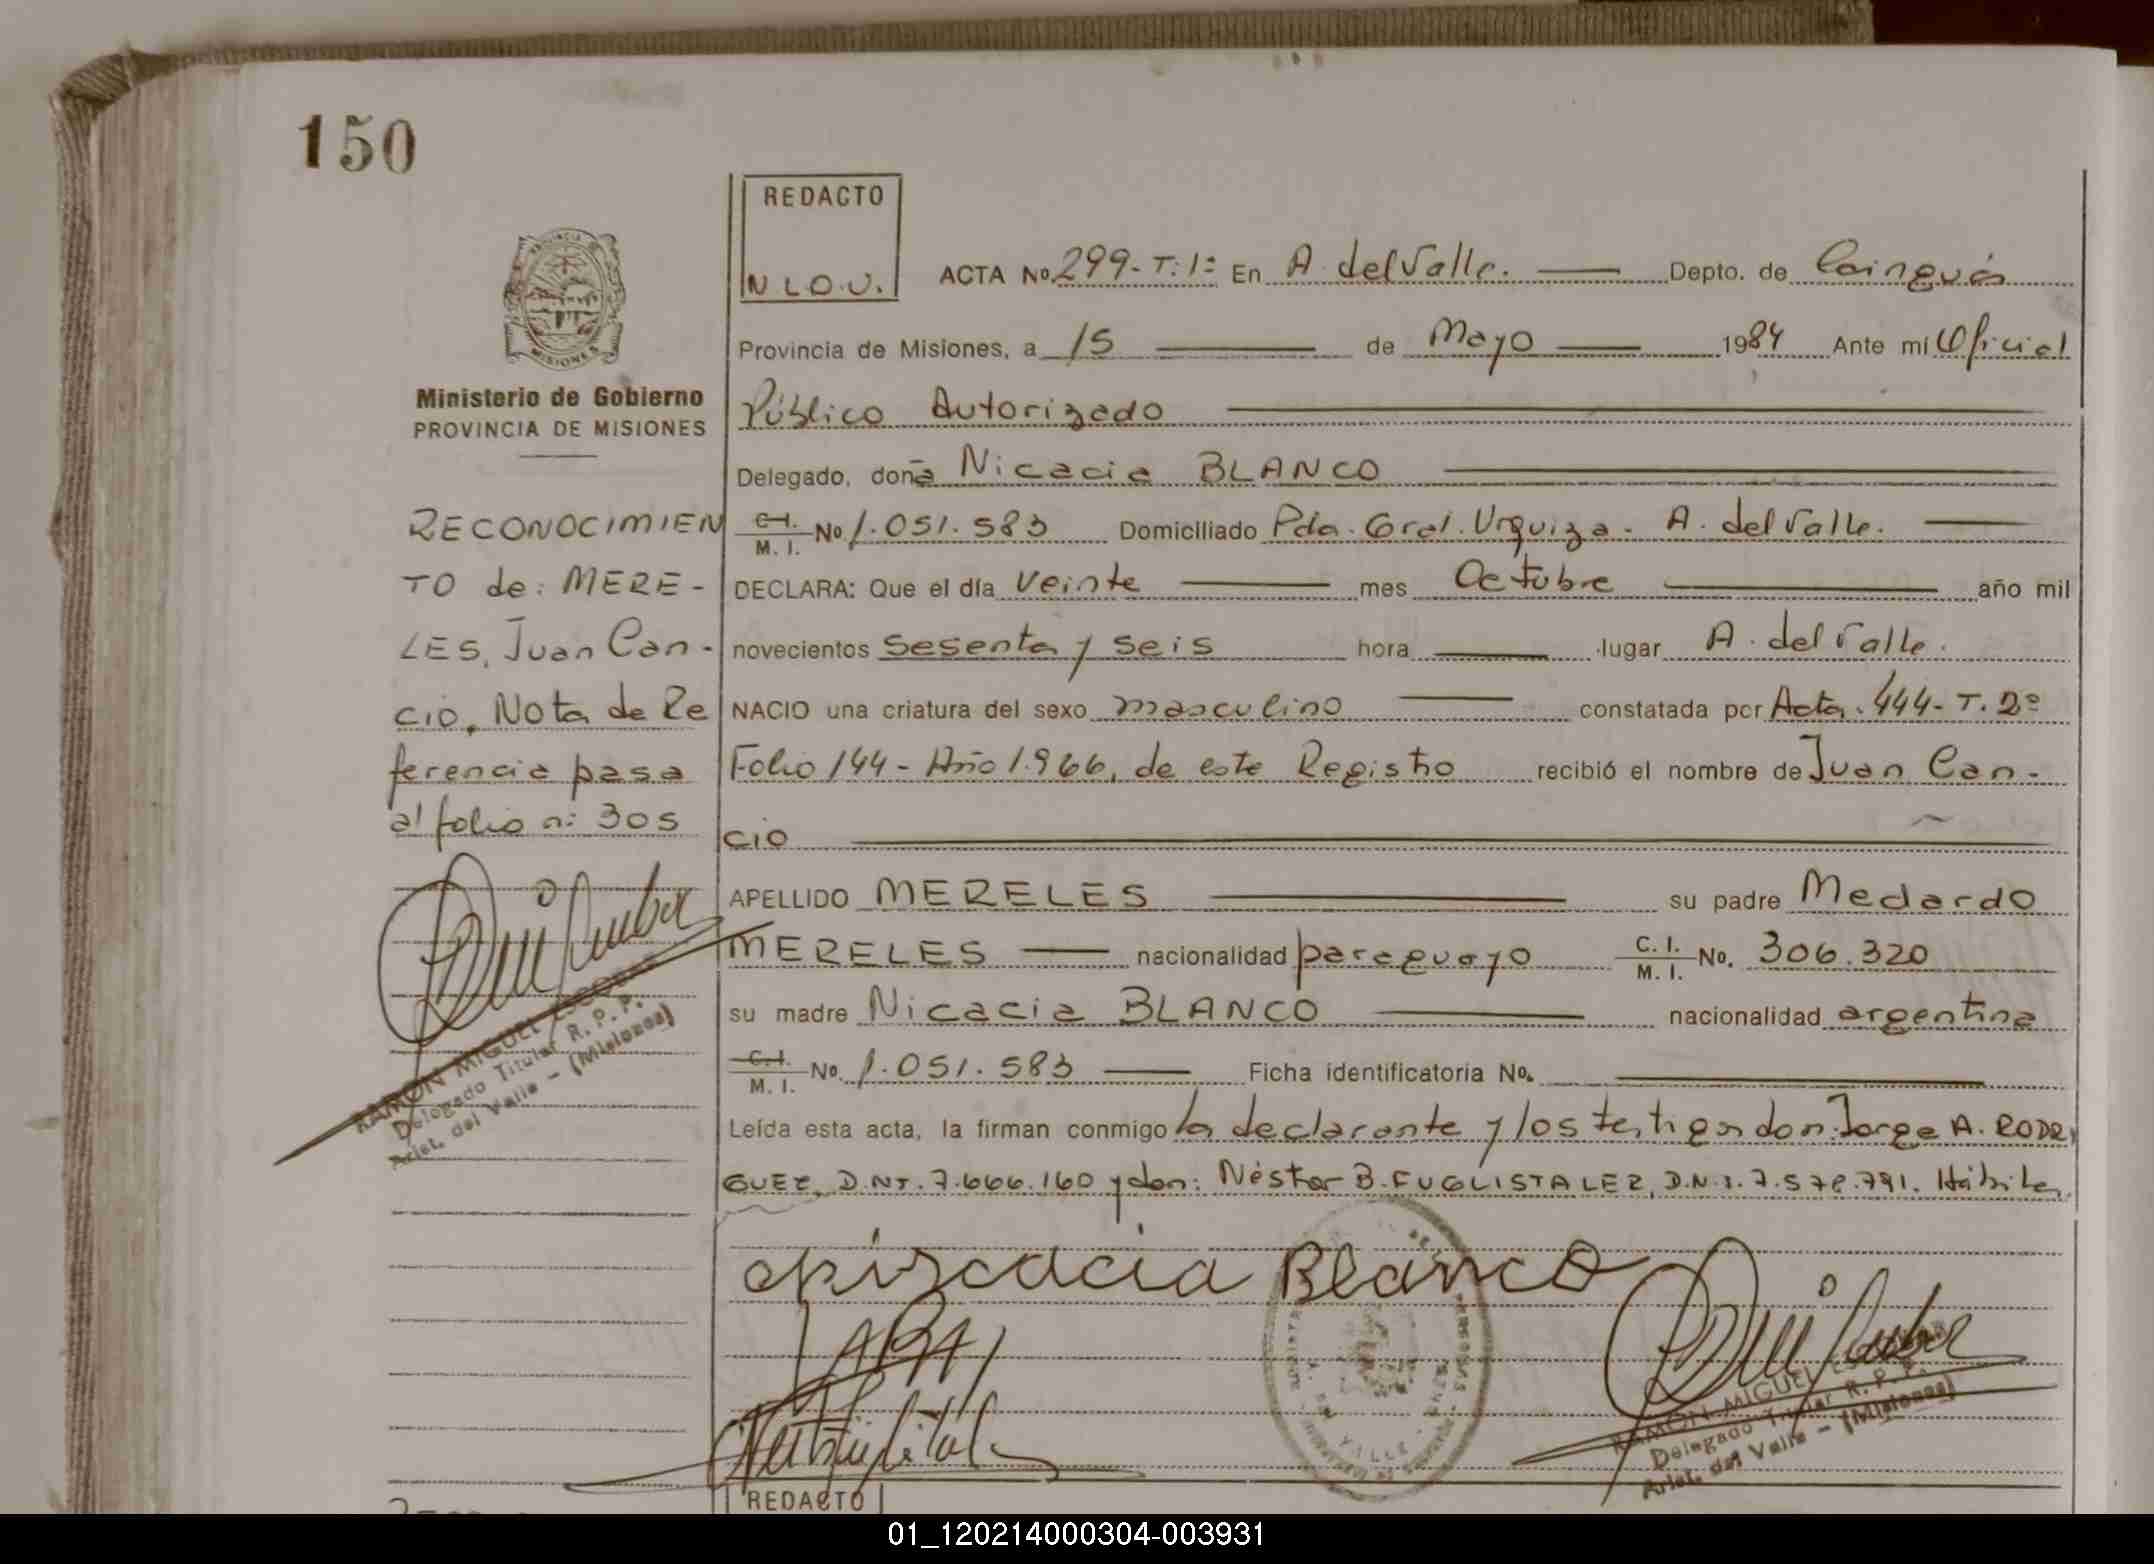 150
REDACTO
N L.O.V.
ACTA No. 299-T:1º En A. del Valle. Depto. de Cainguás
Provincia de Misiones, a 15 de Mayo 1984 Ante mí Oficial
Público Autorizado
Delegado, doña Nicacia BLANCO
C.I. M. I. No. 1.051.583 Domiciliado Pda. Gral. Urquiza. A. del Valle.
DECLARA: Que el día veinte mes Octubre año mil
novecientos sesenta y seis hora lugar A. del Valle.
NACIO una criatura del sexo masculino constatada por Acta. 444-T. 2º
Folio 144 - Año 1.966, de este Registro recibió el nombre de Juan Can-
cio
APELLIDO MERELES su padre Medardo
MERELES nacionalidad paraguayo C. I. M. I. No. 306.320
su madre Nicacia BLANCO nacionalidad argentina
C.I. M. I. No. 1.051.583 Ficha identificatoria No.
Leída esta acta, la firman conmigo la declarante y los testigos don: Jorge A. RODRI
GUEZ, D.NI. 7.666.160 y don: Néstor B. FUGLISTALER, D.N.I. 7.578.791. Hábiles.
PROVINCIA DE
MISIONES
Ministerio de Gobierno
PROVINCIA DE MISIONES
RECONOCIMIEN
TO de: MERE-
LES, Juan Can-
cio, Nota de Re
ferencia pasa
al folio n: 305
RAMON MIGUEL
Delegado Titular R. P. P.
Arist. del Valle - (Misiones)
Blanco
RAMON MIGUEL
Delegado Titular R. P. P.
Arist. del Valle - (Misiones)
REDACTO
01_120214000304-003931